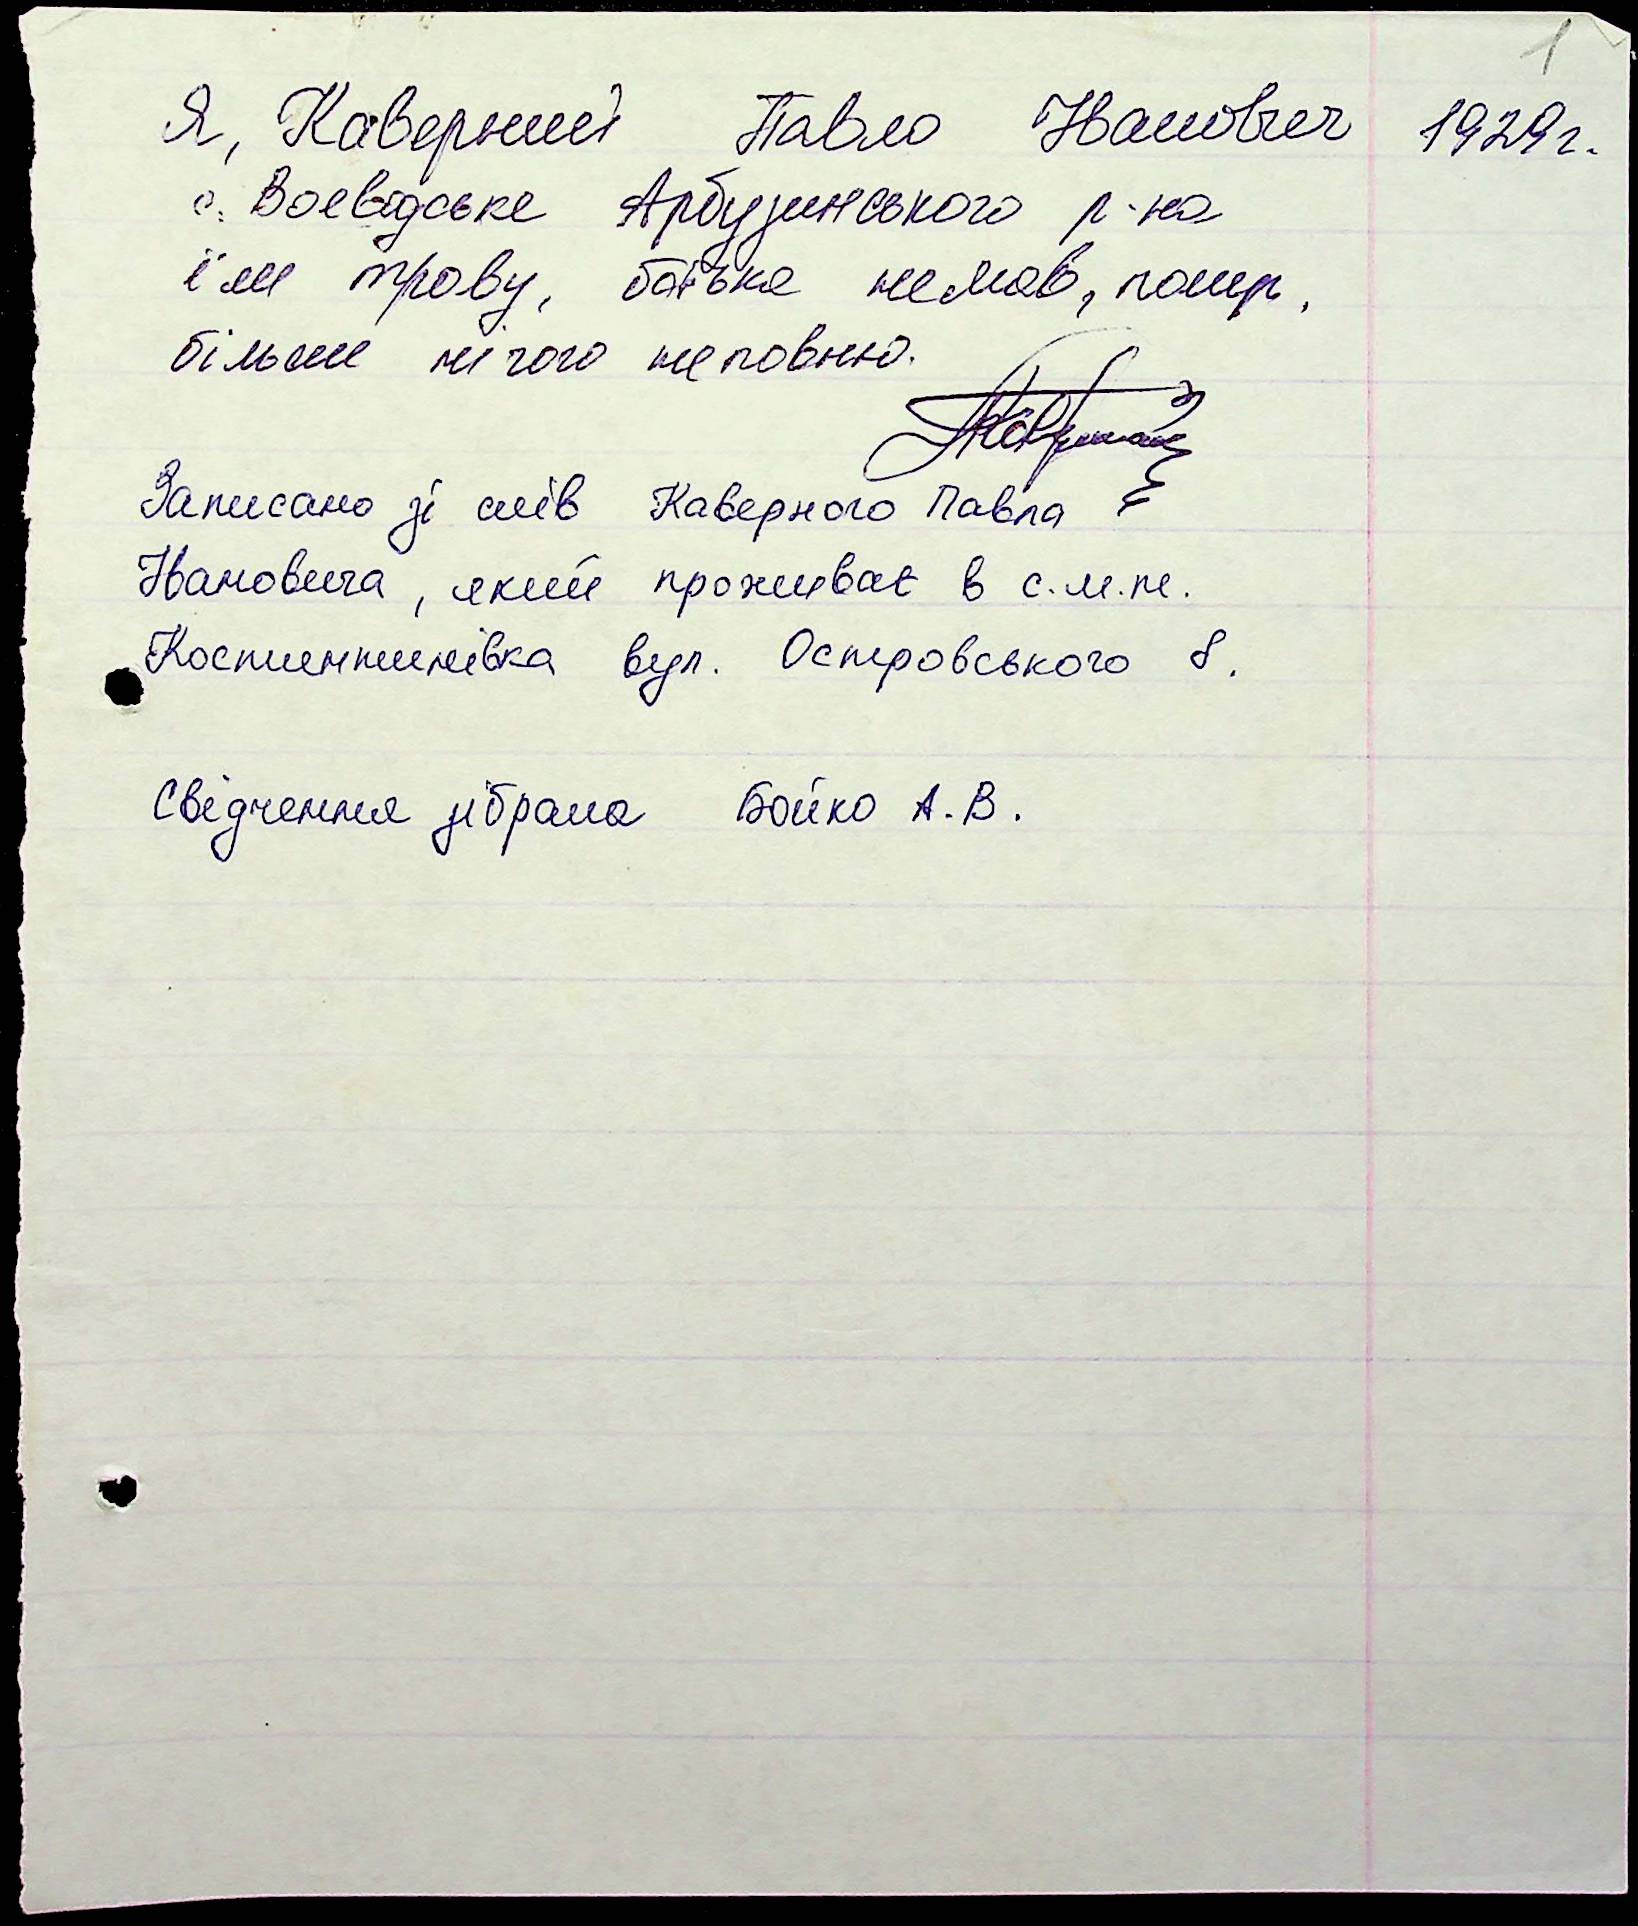 1
Я, Каверний Павло Іванович 1929г.
с. Воєводське Арбузинського р-на
їли траву, батька немав, помер,
більше нічого неповню.
Записано зі слів Каверного Павла
Івановича, який проживає в с.м.т.
Костянтинівка вул. Островського 8.
Свідчення зібрала Бойко А.В.